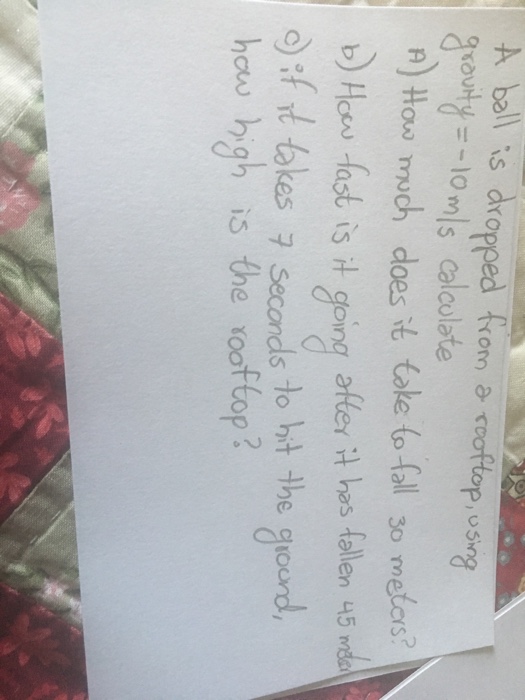 A ball is dropped from a rooftop, using
gravity = -10 m/s calculate
A) How much does it take to fall 30 meters?
b) How fast is it going after it has fallen 45 meter
c) if it takes 7 seconds to hit the ground,
how high is the rooftop?